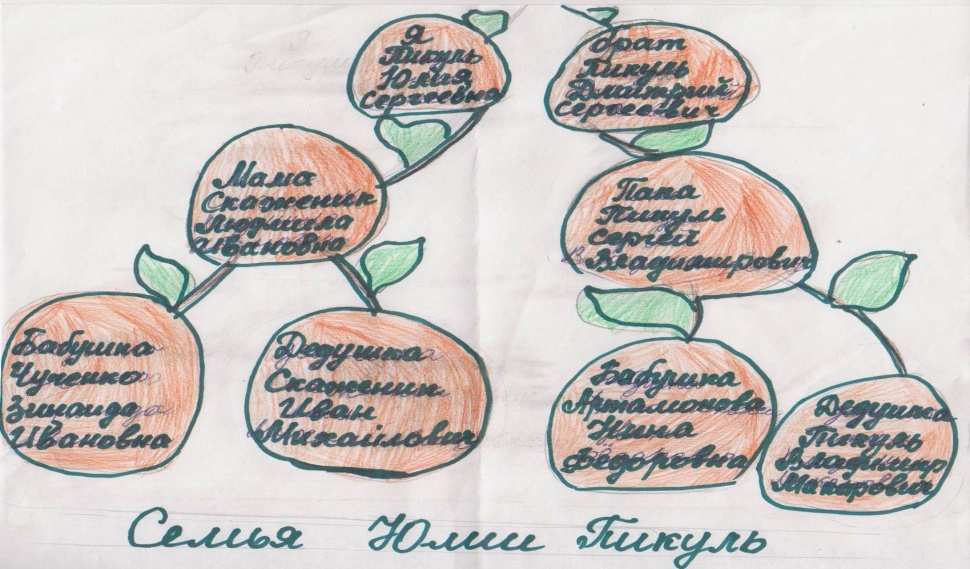 Я
Пикуль
Юлия
Сергеевна
брат
Пикуль
Дмитрий
Сергеевич
Мама
Скаженик
Людмила
Ивановна
Папа
Пикуль
Сергей
Владимирович
Бабушка
Зинаида
Ивановна
Дедушка
Скаженик
Иван
Михайлович
Бабушка
Артамонова
Нина
Федоровна
Дедушка
Пикуль
Владимир
Макарович
Семья Юлии Пикуль